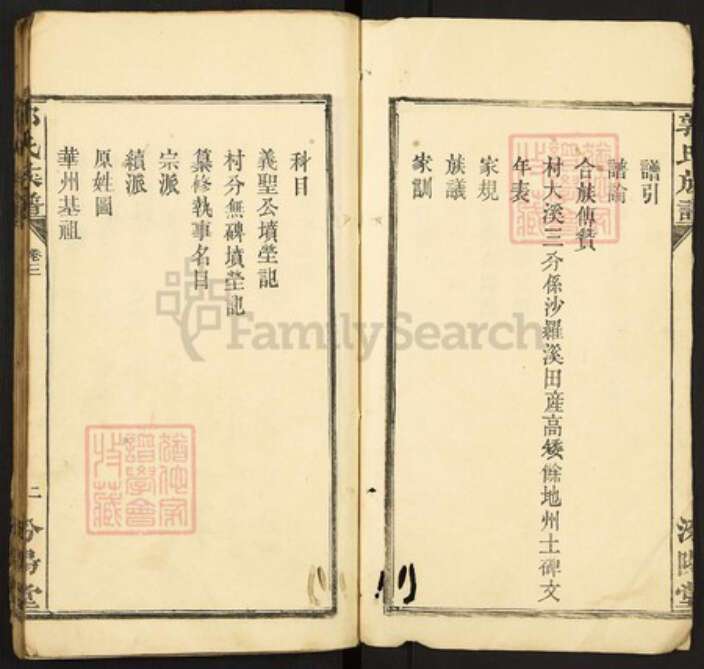 譜引
譜論
合族傳贊
村大溪三分係沙羅溪田產高矮餘地州土碑文
年表
家規
族議
家訓
科目
義聖公墳塋記
村分無碑墳塋記
纂修執事名目
宗派
續派
原姓圖
華州基祖
郭氏族譜
卷三
二
汾陽堂
FamilySearch